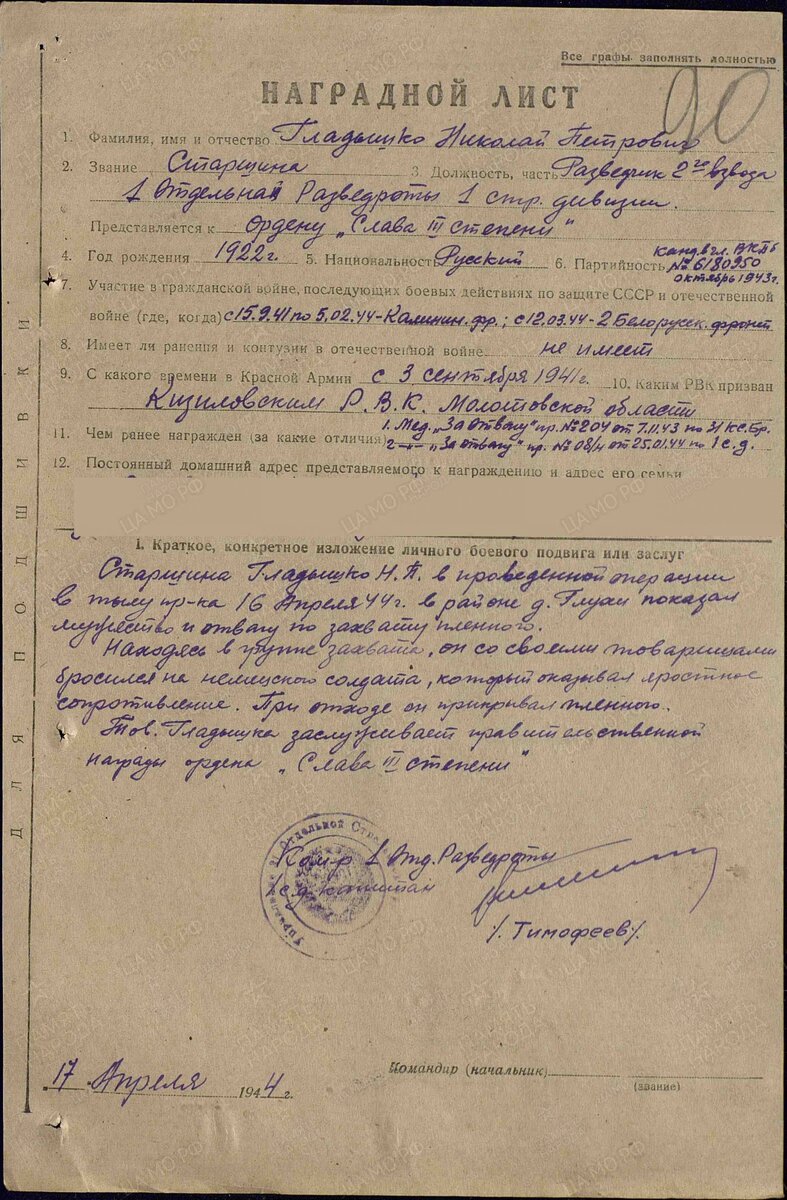 Все графы заполнять полностью
90
НАГРАДНОЙ ЛИСТ
1. Фамилия, имя и отчество Гладышко Николай Петрович
2. Звание Старшина 3. Должность, часть Разведчик 2го взвода
1 Отдельная Разведроты 1 стр. дивизии.
Представляется к Ордену „Слава III степени"
4. Год рождения 1922 г. 5. Национальность Русский 6. Партийность канд. в чл. ВКПб
№ 6180950
октябрь 1943 г.
7. Участие в гражданской войне, последующих боевых действиях по защите СССР и отечественной
войне (где, когда) с 15.9.41 по 5.02.44 - Калинин. фр.; с 12.03.44 - 2 Белорусск. фронт
8. Имеет ли ранения и контузии в отечественной войне не имеет
9. С какого времени в Красной Армии с 3 сентября 1941 г. 10. Каким РВК призван
Кизиловским Р.В.К. Молотовской области
11. Чем ранее награжден (за какие отличия) 1. Мед. „За отвагу" пр. № 204 от 7.11.43 по 31 КС.Бр.
2 —„— „За отвагу" пр. № 08/н от 25.01.44 по 1 с.д.
12. Постоянный домашний адрес представляемого к награждению и адрес его семьи
I. Краткое, конкретное изложение личного боевого подвига или заслуг
Старшина Гладышко Н.П. в проведенной операции
в тылу пр-ка 16 Апреля 44 г. в районе д. Глухи показал
мужество и отвагу по захвату пленного.
Находясь в группе захвата, он со своими товарищами
бросился на немецского солдата, который оказывал яростное
сопротивление. При отходе он прикрывал пленного.
Тов. Гладышка заслуживает правительственной
награды ордена „Слава III степени"
Ком-р 1 Отд. Разведроты
с.д. капитан
/. Тимофеев/.
17 Апреля 1944 г.
Командир (начальник)
(звание)
ДЛЯ ПОДШИВКИ